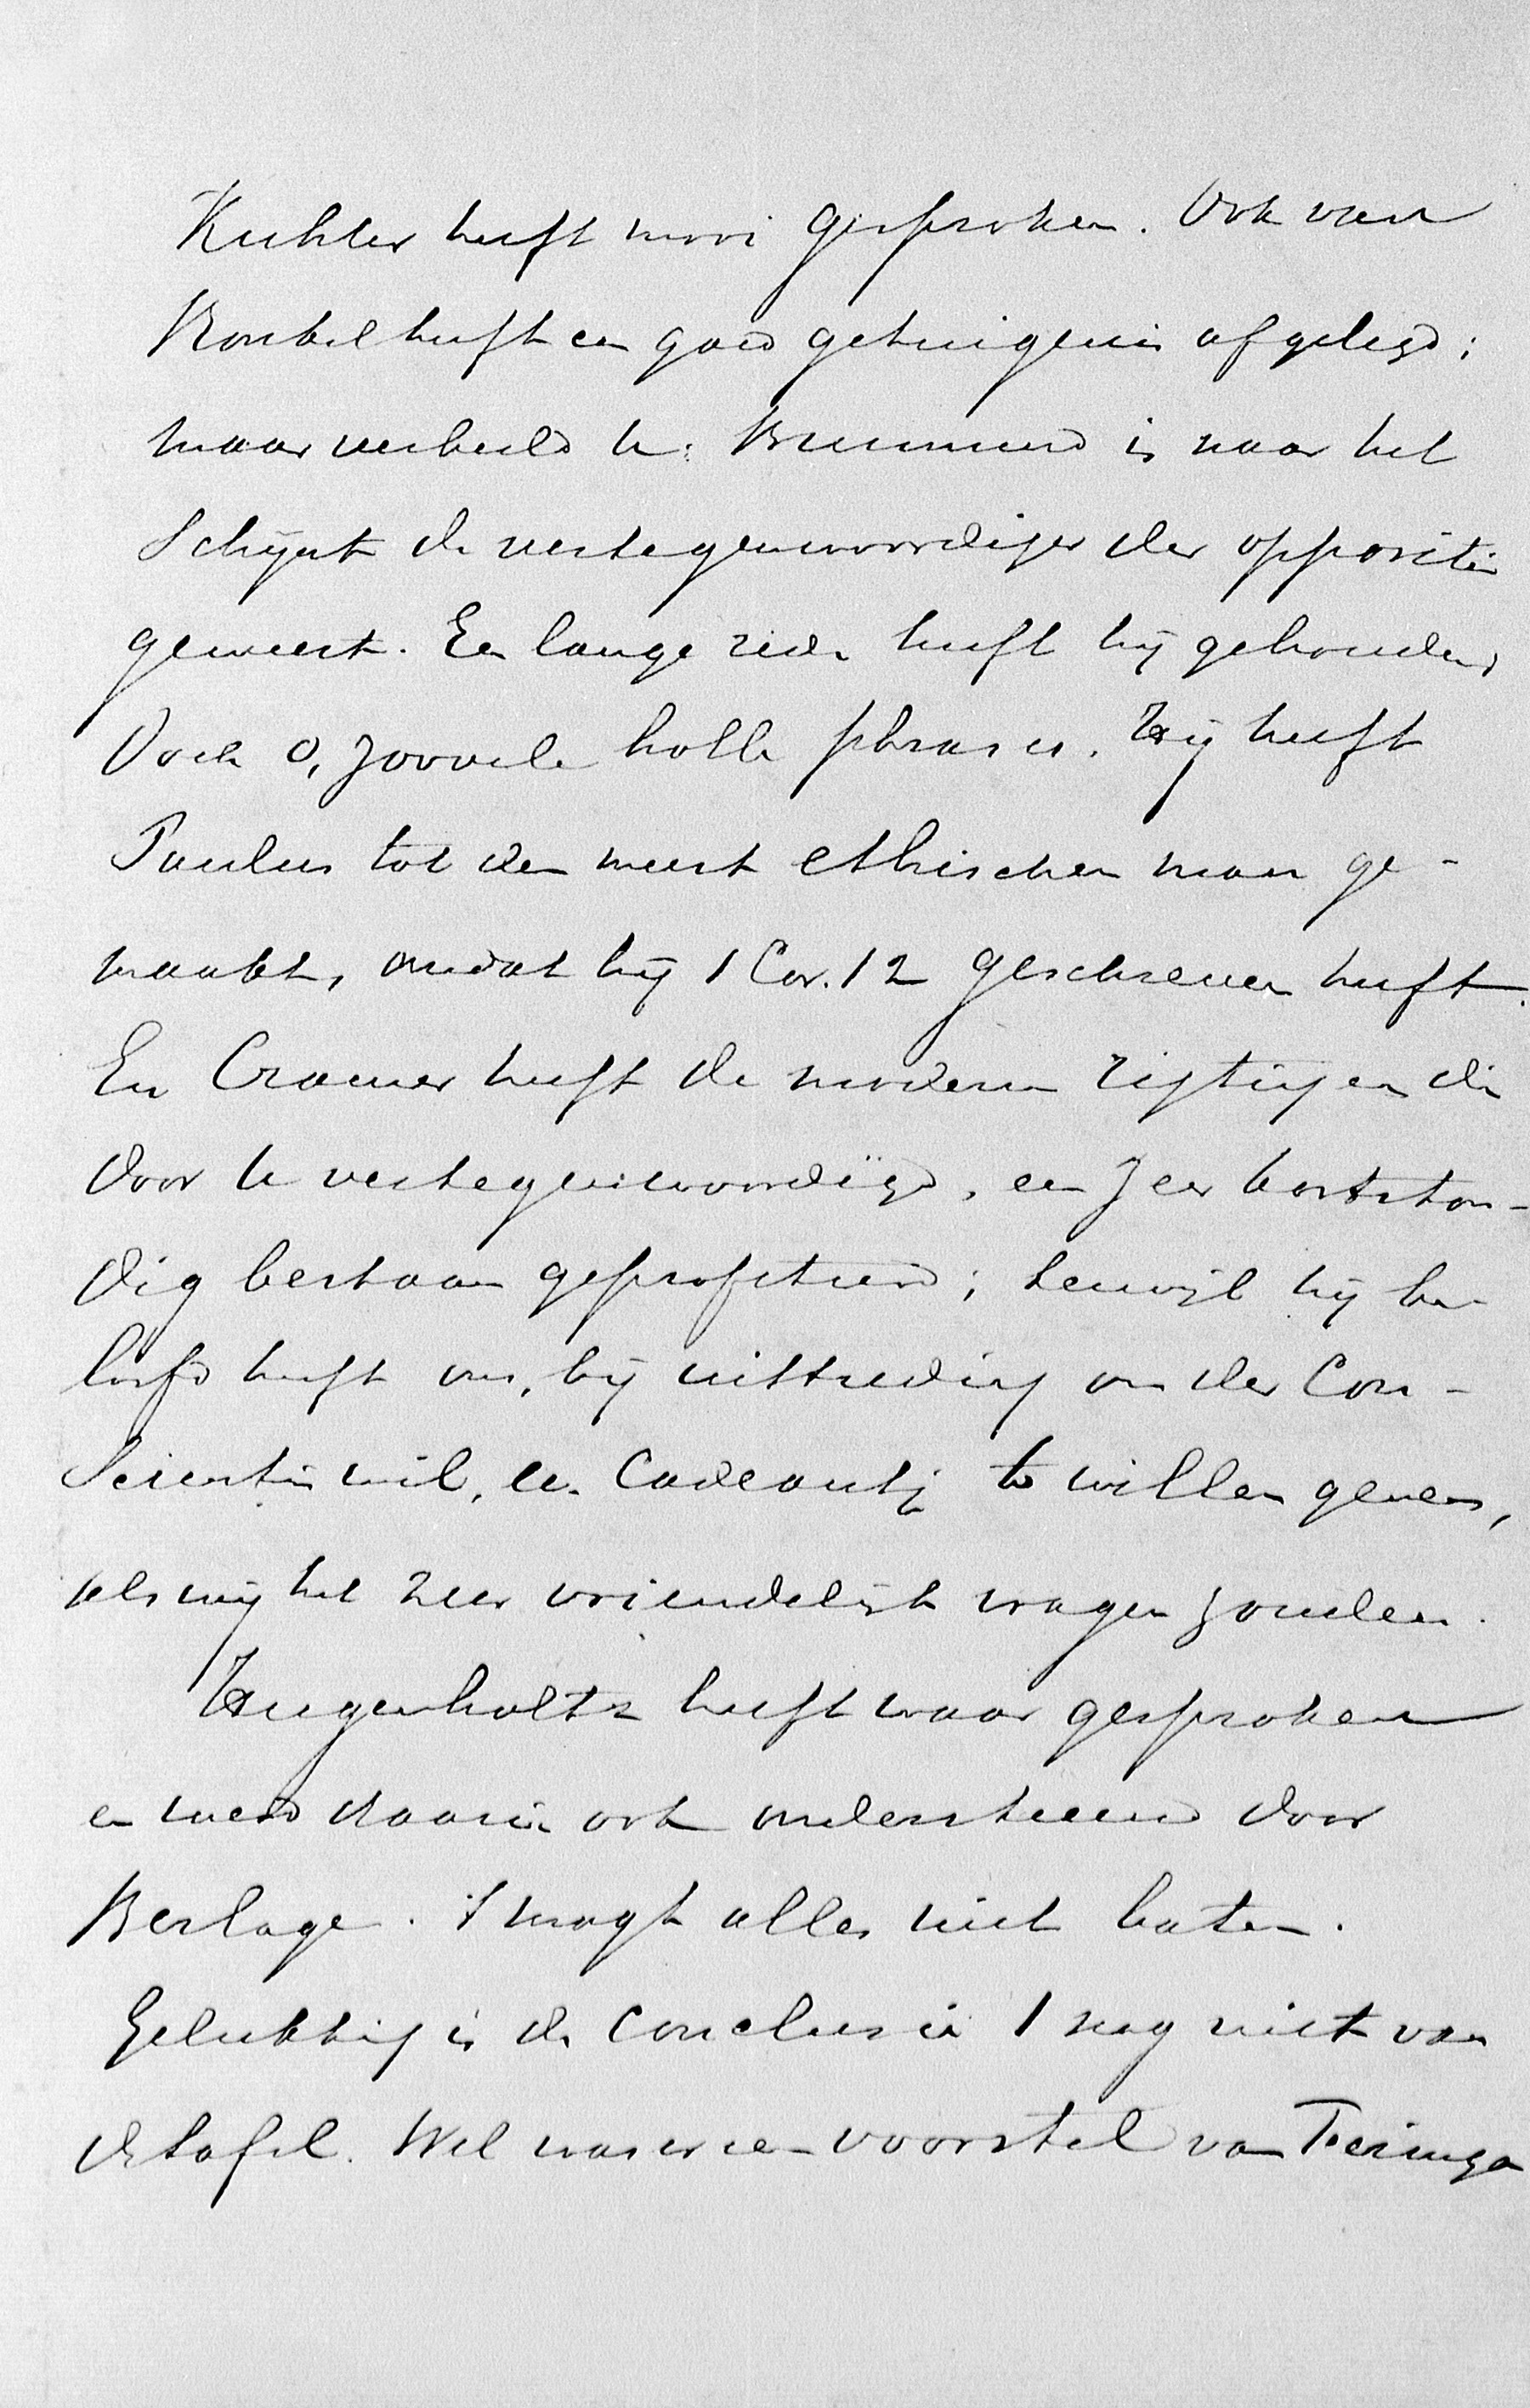 Kuhler heeft mooi gesproken. Ook van
Konkel heeft een goed getuigenis afgelegd;
maar verbeeld U: Brummend is naar het
Schijnt de vertegenwoordiger der oppositie
geweest. Een lange rede heeft hij gehouden,
Doch o, zoovele holle phrases. Hij heeft
Paulus tot den meest ethischen man ge-
maakt, omdat hij 1 Cor. 12 geschreven heeft.
En Cramer heeft de moderne rigting en die
door U vertegenwoordigd, een zeer kortston-
dig bestaan geprofeteerd; terwijl hij be-
loofd heeft ons, bij uittreding om der Con-
scientie wil, een Cadeautje te willen geven,
als wij het zeer vriendelijk vragen zouden.
Hugenholtz heeft waar gesproken
en werd daarin ook ondersteund door
Berlage. 't mogt alles niet baten.
Gelukkig is de conclusie 1 nog niet van
de tafel. Wel was er een voorstel van Feringa